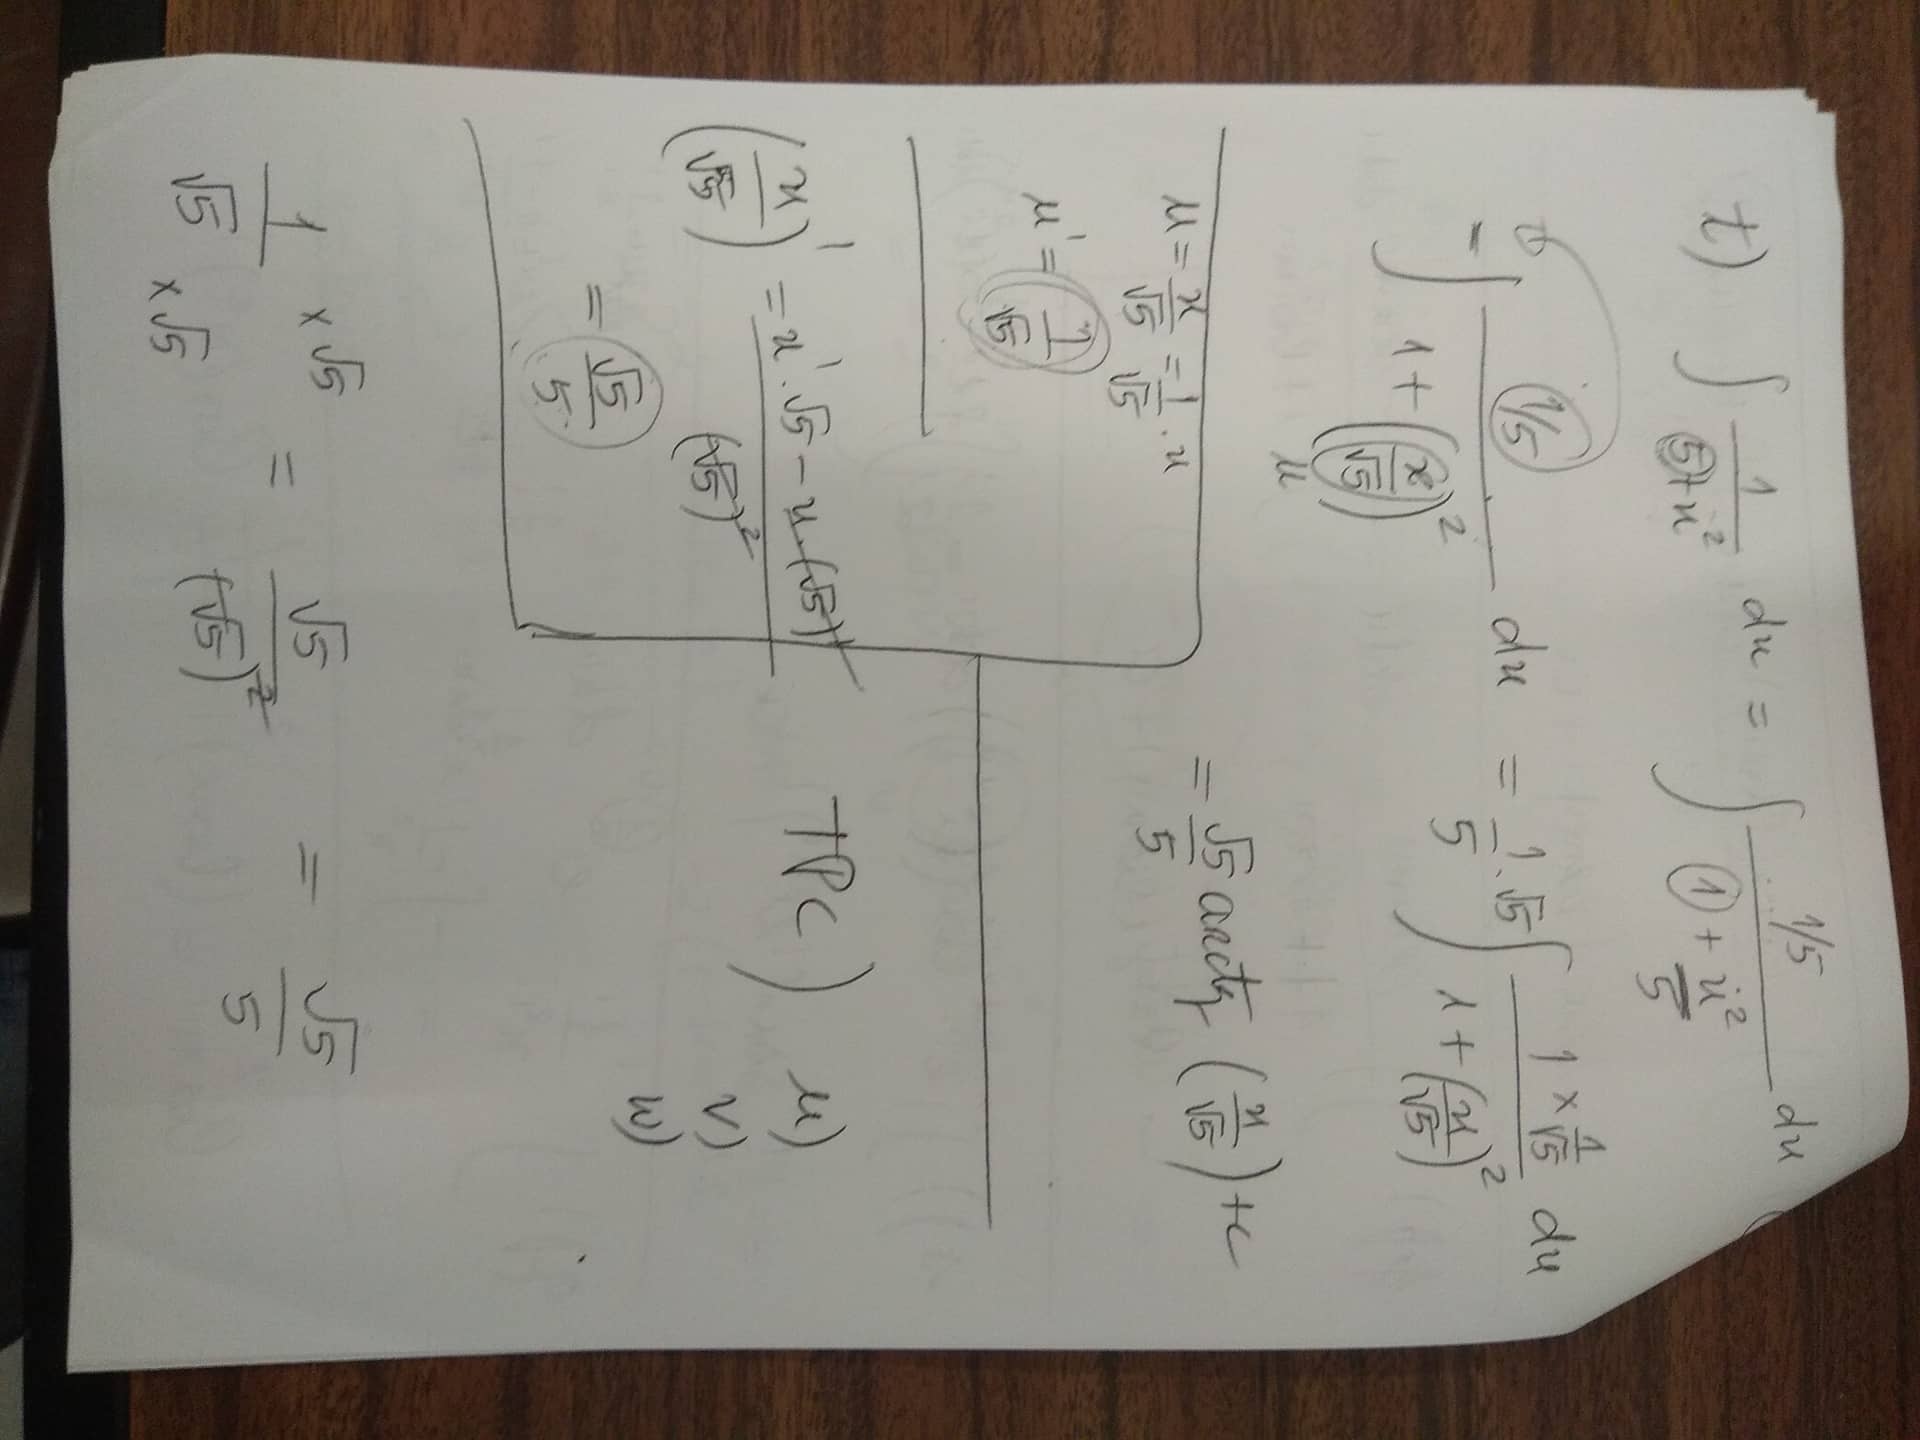 t) ∫ 1/(5+x²) dx = ∫ (1/5)/(1 + x²/5) dx
= ∫ (1/5)/(1 + (x/√5)²) dx = 1/5 · √5 ∫ (1 × 1/√5)/(1 + (x/√5)²) dx
u
= √5/5 arctg (x/√5) + c
u = x/√5 = 1/√5 · x
u' = 1/√5
(x/√5)' = (x' · √5 − x · (√5)')/(√5)²
= √5/5
TPC) u)
v)
w)
1/√5 ×√5 ×√5 = √5/(√5)² = √5/5